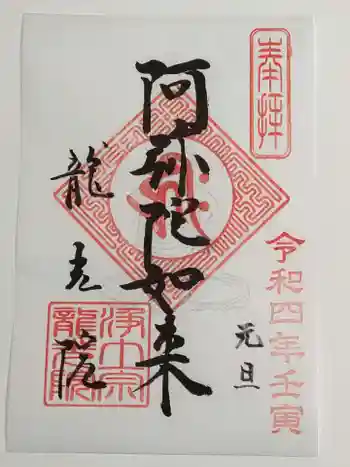 奉拝
令和四年壬寅
元旦
阿弥陀如来
龍光院
浄土宗
龍光院